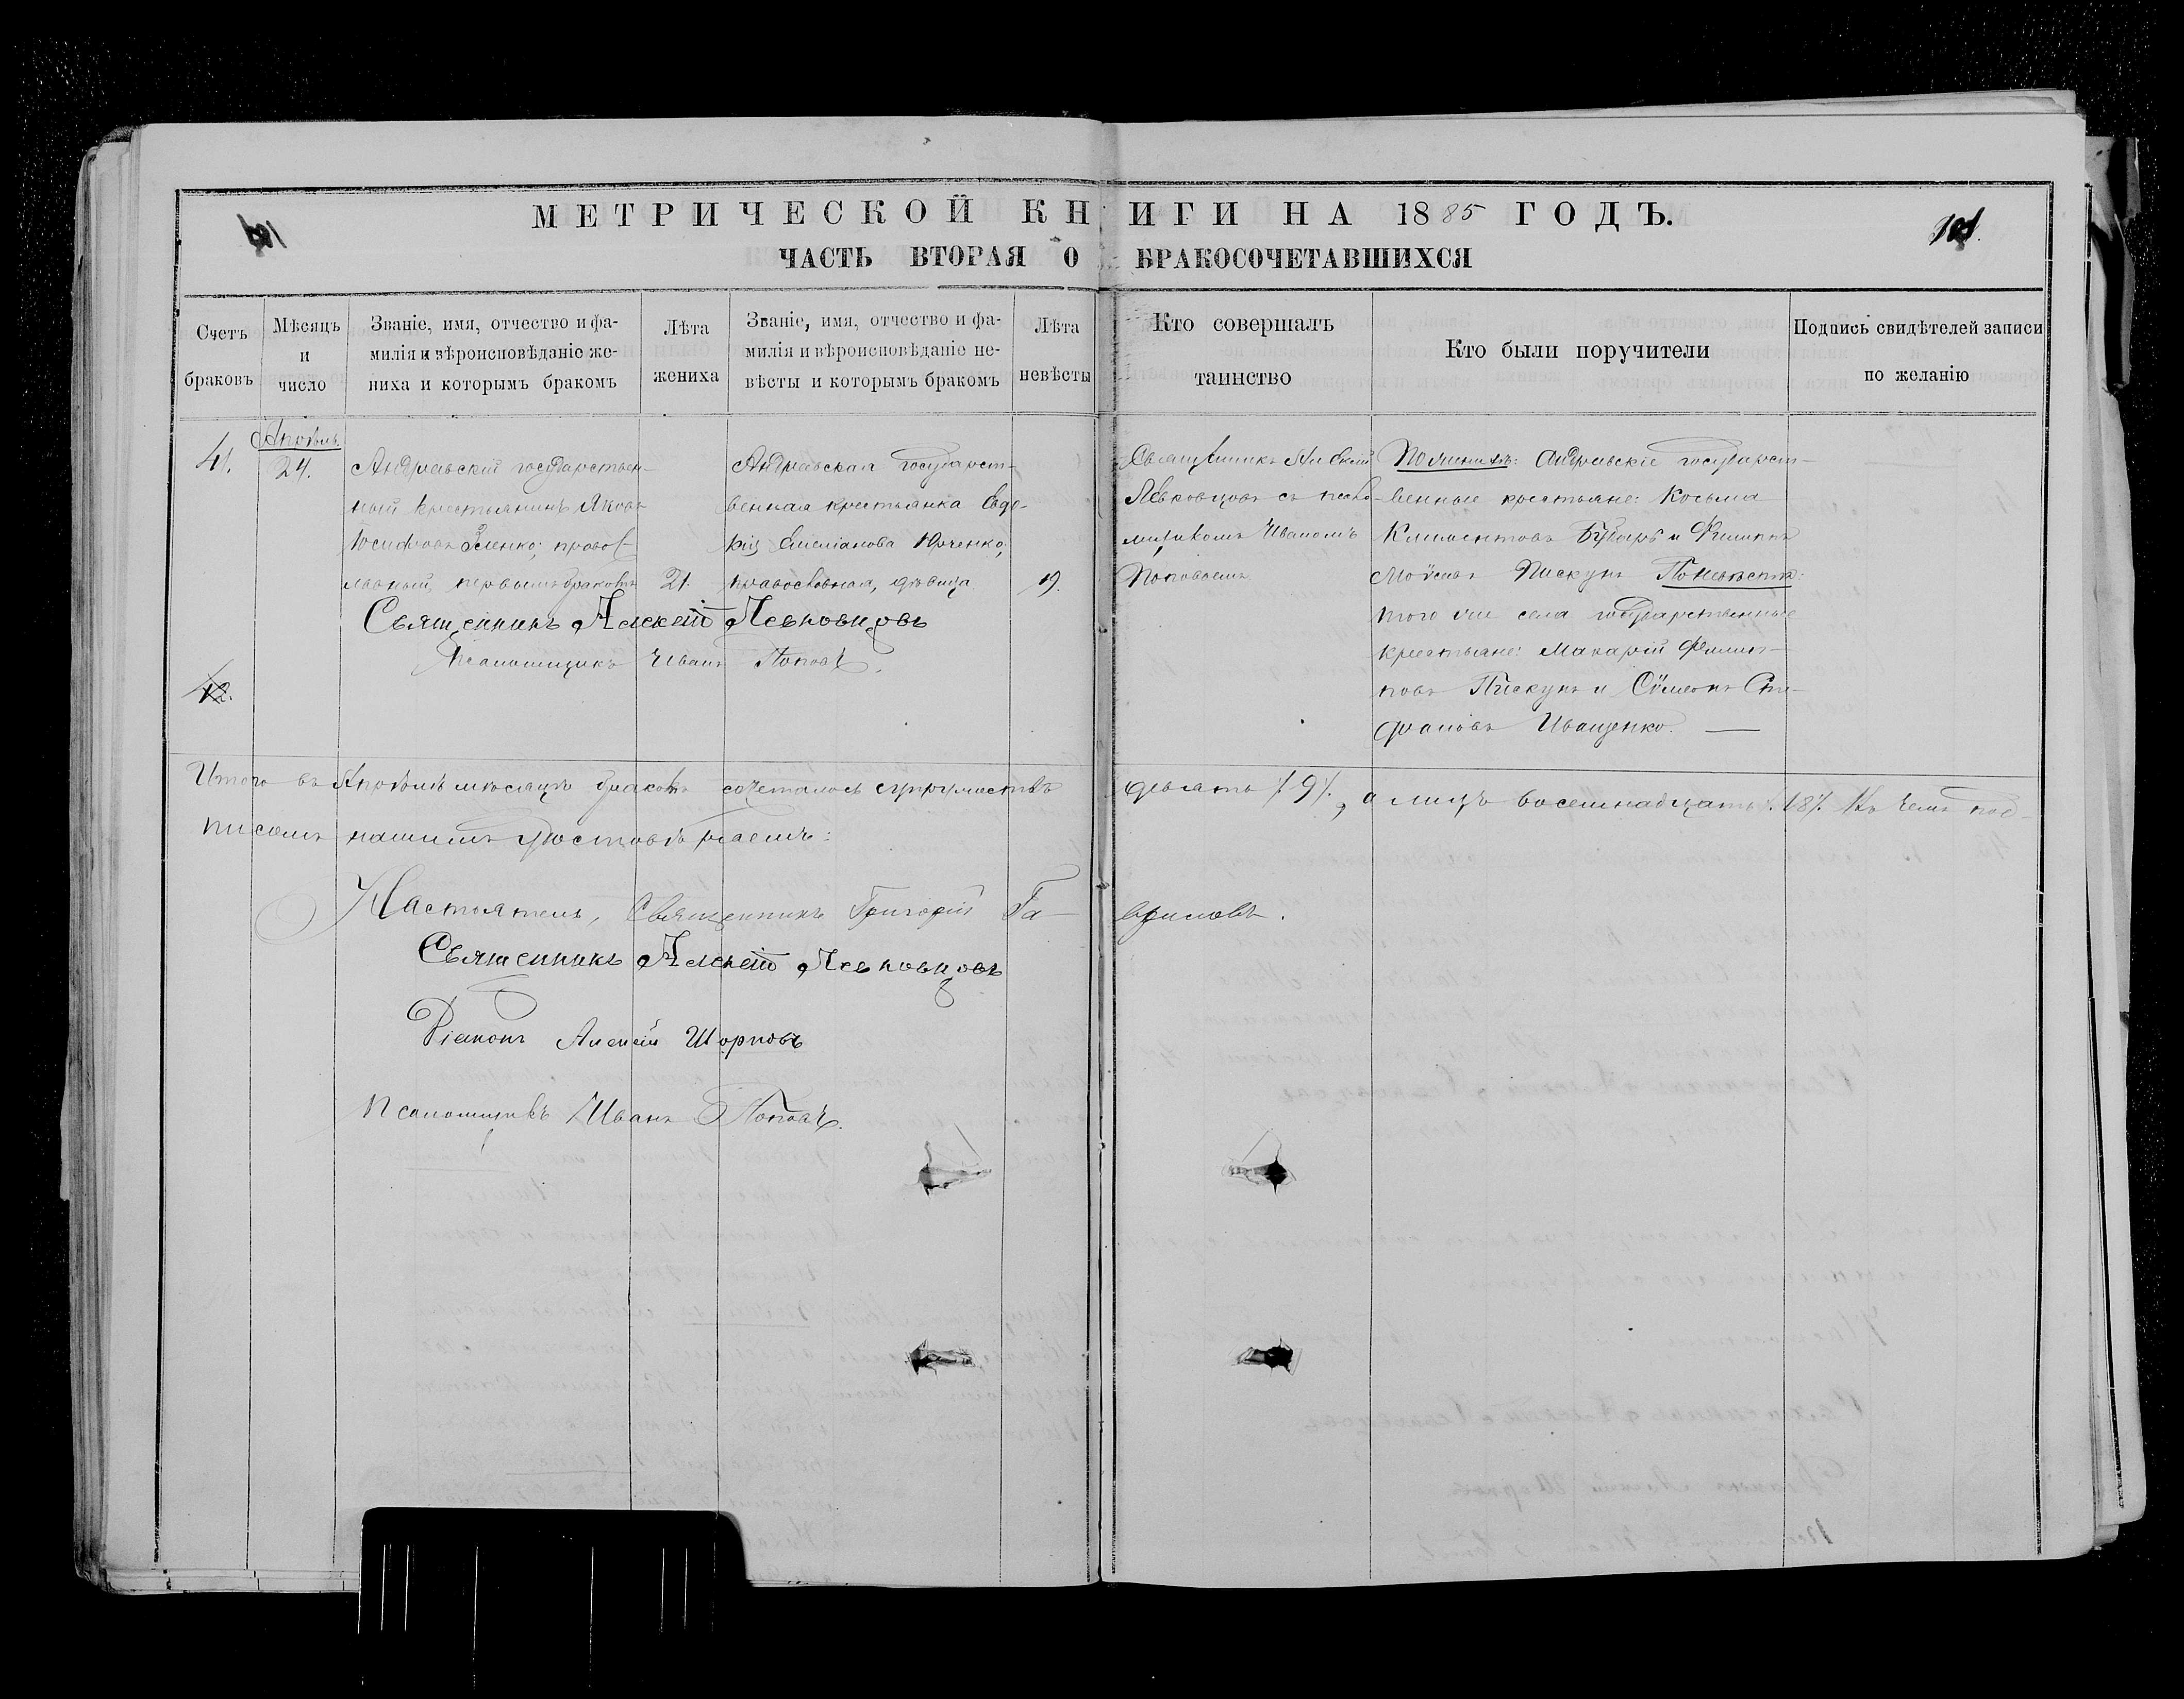 МЕТРИЧЕСКОЙ КНИГИ НА 1885 ГОДЪ.
101.
ЧАСТЬ ВТОРАЯ О БРАКОСОЧЕТАВШИХСЯ
Счетъ браковъ
Мѣсяцъ и число
Званіе, имя, отчество и фа-
милія и вѣроисповѣданіе же-
ниха и которымъ бракомъ
Лѣта жениха
Званіе, имя, отчество и фа-
милія и вѣроисповѣданіе не-
вѣсты и которымъ бракомъ
Лѣта невѣсты
Кто совершалъ
таинство
Кто были поручители
Подпись свидѣтелей записи
по желанію
41.
Апрѣль.
24.
Андреевскій государствен-
ный крестьянинъ Яковъ
Іосифовъ Зленко; правос-
лавный, первымъ бракомъ
21.
Андреевская государст-
венная крестьянка Евдо-
кія Емеліанова Юрченко;
православная, дѣвица
19.
Священникъ Алексій
Левковцовъ съ псало-
мщикомъ Иваномъ
Поповымъ
По женихѣ: Андреевскіе государст-
венные крестьяне: Косьма
Климентовъ Бубырь и Филиппъ
Мойсеевъ Пискунъ По невѣстѣ:
того же села государственные
крестьяне: Макарій Филип-
повъ Пискунъ и Сѵмеонъ Сте-
фановъ Иващенко. —
Священникъ Алексій Левковцовъ
Псаломщикъ Иванъ Поповъ.
42.
Итого въ Апрѣлѣ мѣсяцѣ браковъ сочеталось супружествъ девять /9/., а лицъ восемнадцать /.18/. Въ чемъ под-
писомъ нашимъ удостовѣряемъ:
Настоятель, Священникъ Григорій Гавриловъ.
Священникъ Алексій Левковцовъ
Діаконъ Алексій Шорновъ
Псаломщикъ Иванъ Поповъ.